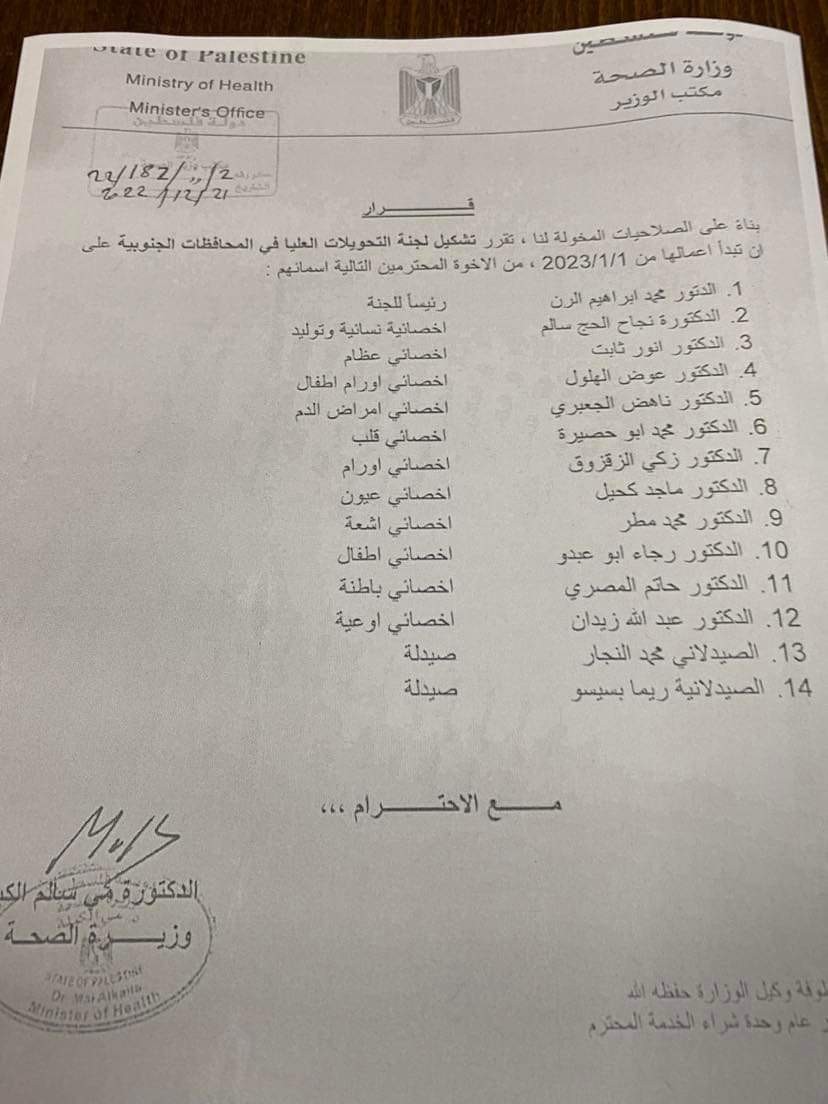 State of Palestine
Ministry of Health
Minister's Office
وزارة الصحة
مكتب الوزير
دولة فلسطين
22/182/
2022/12/21
قـــــــــرار
بناءً على الصلاحيات المخولة لنا ، تقرر تشكيل لجنة التحويلات العليا في المحافظات الجنوبية على
ان تبدأ اعمالها من 2023/1/1 ، من الاخوة المحترمين التالية اسمائهم :
1. الدتور محمد ابراهيم الرن رئيساً للجنة
2. الدكتورة نجاح الحج سالم اخصائية نسائية وتوليد
3. الدكتور انور ثابت اخصائي عظام
4. الدكتور عوض الهلول اخصائي اورام اطفال
5. الدكتور ناهض الجعبري اخصائي امراض الدم
6. الدكتور محمد ابو حصيرة اخصائي قلب
7. الدكتور زكي الزقزوق اخصائي اورام
8. الدكتور ماجد كحيل اخصائي عيون
9. الدكتور محمد مطر اخصائي اشعة
10. الدكتور رجاء ابو عبدو اخصائي اطفال
11. الدكتور حاتم المصري اخصائي باطنة
12. الدكتور عبد الله زيدان اخصائي اوعية
13. الصيدلاني محمد النجار صيدلة
14. الصيدلانية ريما بسيسو صيدلة
مـــــع الاحتـــــــرام ،،،
الدكتورة مي سالم
وزيـــــرة الصحـة
STATE OF PALESTINE
Dr. Mai Alkaila
Minister of Health
وكيل الوزارة حفظه الله
عام وحدة شراء الخدمة المحترم